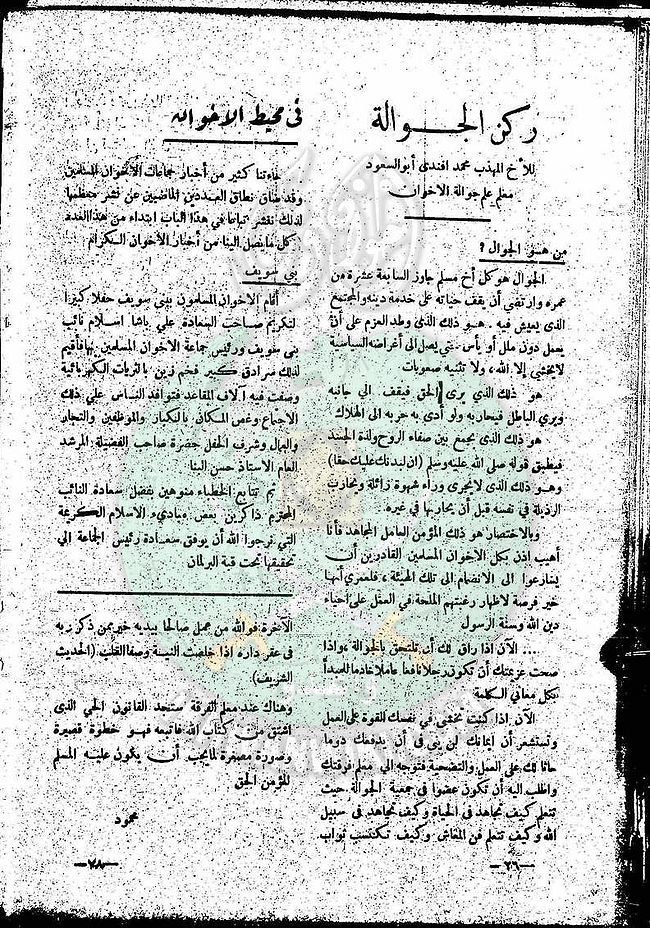 ركن الجـــوالة
للأخ المهذب محمد افندى أبو السعود
معلم علم جوالة الاخوان
من هـو الجوال ؟
الجوال هو كل أخ مسلم جاوز السابعة عشرة من
عمره وارتضي أن يقف حياته على خدمة دينه والمجتمع
الذى يعيش فيه . هـو ذلك الذى وطد العزم على أن
يعمل دون ملل أو يأس حتى يصل الى أغراضه السياسة
لا يخشى إلا الله ، ولا تثنيه صعوبات
هو ذلك الذى يرى الحق فيقف الي جانبه
ويرى الباطل فيحاربه ولو أدى به حربه الى الهلاك
هو ذلك الذى يجمع بين صفاء الروح ولذة الجسد
فيطبق قوله صلى الله عليه وسلم (ان لبدنك عليك حقا)
وهـو ذلك الذى لا يجرى وراء شهوة زائلة ويحارب
الرذيلة في نفسه قبل أن يحاربها في غيره .
وبالاختصار هو ذلك المؤمن العامل المجاهد فأنا
أهيب اذن بكل الاخوان المسلمين القادرين أن
يسارعوا الى الانضمام الى تلك الهيئة ، فلعمرى أنها
خير فرصة لاظهار رغبتهم الملحة في العمل على احياء
دين الله وسنة الرسول
.... الآن اذا راق لك أن تلتحق بالجوالة ، واذا
صحت عزيمتك أن تكون رجلا نافعا عاملا خادما للمبدأ
بكل معاني الكلمة
الآن اذا كنت تخشى في نفسك القوة على العمل
وتستشعر أن ايمانك لن ينى فى أن يدفعك دوما
حاثا لك على العمل والتضحية فتوجه الى معلم فرقتك
واطلب اليه أن تكون عضوا فى جمعية الجوالة حيث
تتعلم كيف تجاهد فى الحياة وكيف تجاهد فى سبيل
الله وكيف تتعلم فن المعاش وكيف تكتسب ثواب
—٢٦—
فى محيط الاخوان
جاءتنا كثير من أخبار جماعات الاخوان المسلمين
وقد ضاق نطاق العددين الماضيين عن نشر معظمها
لذلك نقشر تباعا في هذا الباب ابتداء من هذا العدد
كل ما يصل الينا من أخبار الاخوان الكرام
بني سويف
أقام الاخوان المسلمون ببنى سويف حفلا كبيرا
لتكريم صاحب السعادة علي باشا اسلام نائب
بنى سويف ورئيس جماعة الاخوان المسلمين بها فأقيم
لذلك سرادق كبير فخم زين بالثريات الكهربائية
وصفت فيه آلاف المقاعد فتوافد الناس علي ذلك
الاجتماع وغص المكان بالكبار والموظفين والتجار
والعمال وشرف الحفل حضرة صاحب الفضيلة المرشد
العام الاستاذ حسن البنا
ثم تتابع الخطباء منوهين بفضل سعادة النائب
المحترم ذاكرين بعض مبادىء الاسلام الكريمة
التى نرجوا الله أن يوفق سعادة رئيس الجماعة الي
تحقيقها تحت قبة البرلمان
الآخرة فوالله من عمل صالحا بيديه خير ممن ذكر ربه
فى عقر داره اذا خلصت النية وصفا القلب (الحديث
الشريف)
وهناك عند معلم الفرقة ستجد القانون الحي الذى
اشتق من كتاب الله فاتبعه فهـو خطوة قصيرة
وصورة مصغرة لما يجب أن يكون عليه المسلم
المؤمن الحق
محمود
—٢٨—